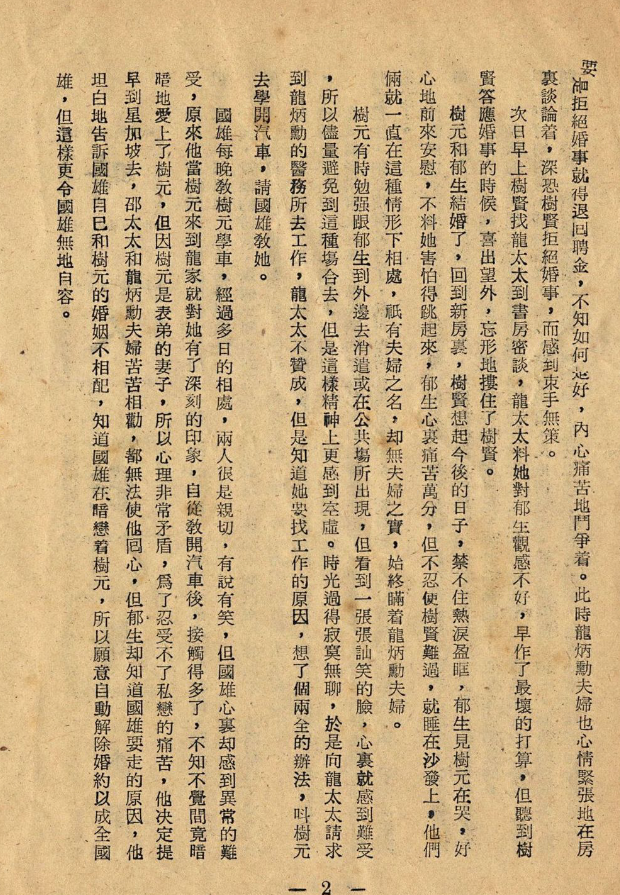 要她拒絕婚事就得退回聘金，不知如何是好，內心痛苦地鬥爭着。此時龍炳勳夫婦也心情緊張地在房
裏談論着，深恐樹賢拒絕婚事，而感到束手無策。
次日早上樹賢找龍太太到書房密談，龍太太料她對郁生觀感不好，早作了最壞的打算，但聽到樹
賢答應婚事的時候，喜出望外，忘形地摟住了樹賢。
樹元和郁生結婚了，回到新房裏，樹賢想起今後的日子，禁不住熱淚盈眶，郁生見樹元在哭，好
心地前來安慰，不料她害怕得跳起來，郁生心裏痛苦萬分，但不忍使樹賢難過，就睡在沙發上，他們
倆就一直在這種情形下相處，祇有夫婦之名，却無夫婦之實，始終瞞着龍炳勳夫婦。
樹元有時勉强跟郁生到外邊去消遣或在公共塲所出現，但看到一張張訕笑的臉，心裏就感到難受
，所以儘量避免到這種塲合去，但是這樣精神上更感到空虛。時光過得寂寞無聊，於是向龍太太請求
到龍炳勳的醫務所去工作，龍太太不贊成，但是知道她要找工作的原因，想了個兩全的辦法，叫樹元
去學開汽車，請國雄敎她。
國雄每晚敎樹元學車，經過多日的相處，兩人很是親切，有說有笑，但國雄心裏却感到異常的難
受，原來他當樹元來到龍家就對她有了深刻的印象，自從敎開汽車後，接觸得多了，不知不覺間竟暗
暗地愛上了樹元，但因樹元是表弟的妻子，所以心理非常矛盾，爲了忍受不了私戀的痛苦，他決定提
早到星加坡去，邵太太和龍炳勳夫婦苦苦相勸，都無法使他回心，但郁生却知道國雄要走的原因，他
坦白地告訴國雄自已和樹元的婚姻不相配，知道國雄在暗戀着樹元，所以願意自動解除婚約以成全國
雄，但這樣更令國雄無地自容。
— 2 —